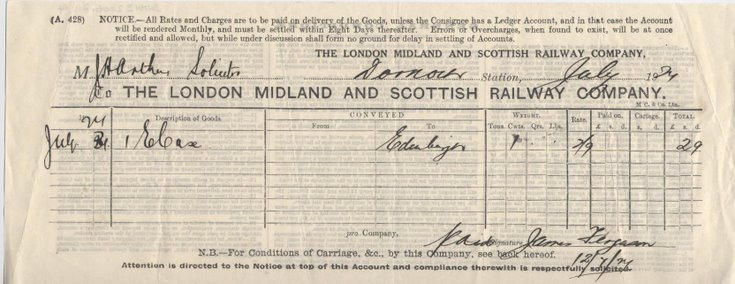 (A. 428) NOTICE.—All Rates and Charges are to be paid on delivery of the Goods, unless the Consignee has a Ledger Account, and in that case the Account
will be rendered Monthly, and must be settled within Eight Days thereafter. Errors or Overcharges, when found to exist, will be at once
rectified and allowed, but while under discussion shall form no ground for delay in settling of Accounts.
THE LONDON MIDLAND AND SCOTTISH RAILWAY COMPANY,
M Solicitor Dornoch Station, July 1924
To THE LONDON MIDLAND AND SCOTTISH RAILWAY COMPANY.
M'C. & Co. Ltd.
Description of Goods. CONVEYED WEIGHT. Rate. Paid on. Carriage. TOTAL.
From To Tons. Cwts. Qrs. Lbs. £ s. d. £ s. d. £ s. d.
24
July 1 E Case Edinburgh 1 2/9 2 9
pro Company,
Paid Signature James Ferguson
N.B.—For Conditions of Carriage, &c., by this Company, see back hereof.
12/7/24
Attention is directed to the Notice at top of this Account and compliance therewith is respectfully solicited.